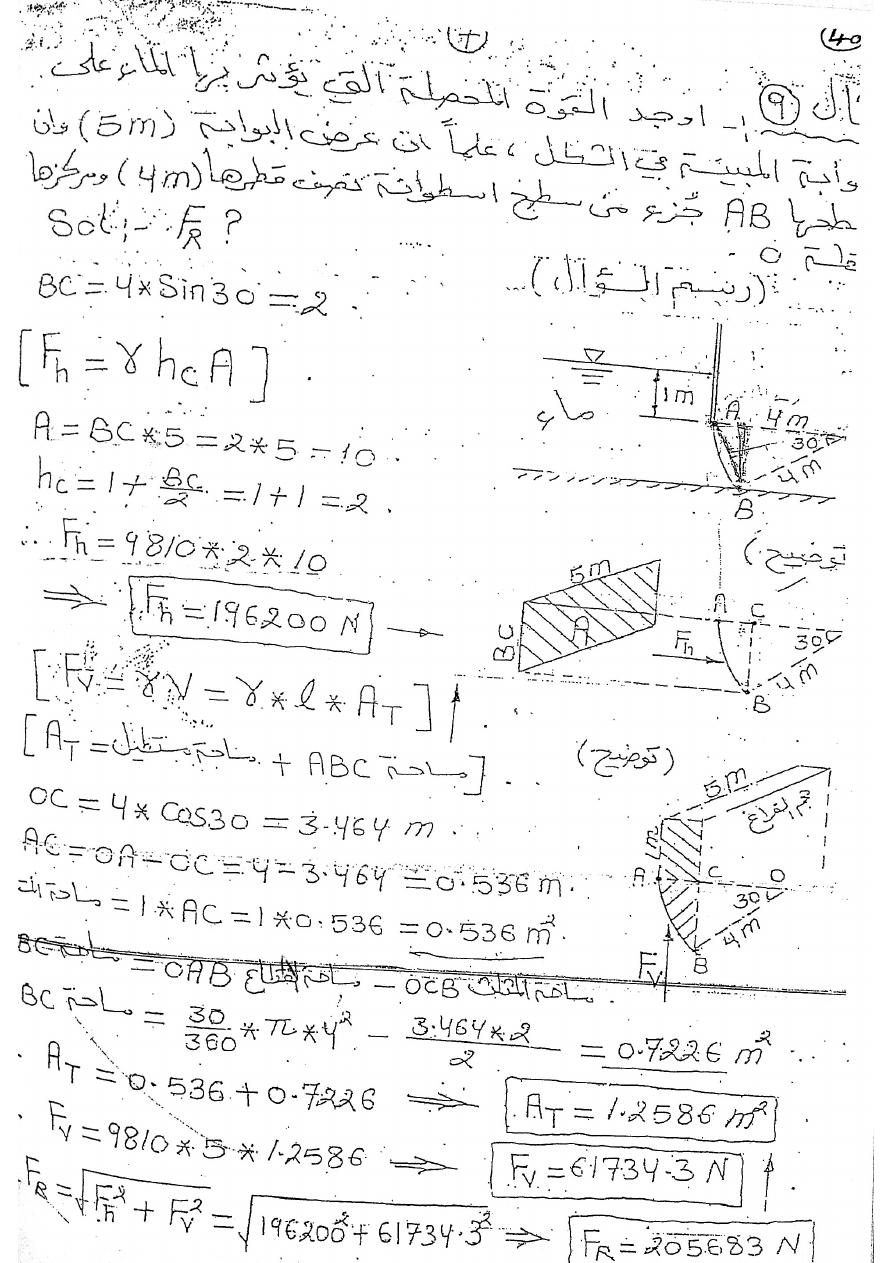 (40
(+)
ثال (9) :- اوجد القوة المحصلة التي يؤثر بها الماء على
وابة المبينة في الشكل ، علماً ان عرض البوابة (5m) وان
طحها AB جُزء من سطح اسطوانة نصف قطرها (4m) ومركزها
قطة O .
Sol:- F_R ?
(رسم السؤال)
BC = 4 * Sin30 = 2 .
[F_h = γ h_c A] .
A = BC * 5 = 2 * 5 = 10 .
h_c = 1 + BC/2 = 1 + 1 = 2 .
∴ F_h = 9810 * 2 * 10
⇒ F_h = 196200 N →
1m
ماء
A 4m
30
4m
B
(توضيح)
5m
BC
A
F_h
A C
30
4m
B
[F_v = γ V = γ * l * A_T] ↑
[A_T = مساحة مستطيل + مساحة ABC] .
OC = 4 * Cos30 = 3.464 m .
AC = OA - OC = 4 - 3.464 = 0.536 m .
= 1 * AC = 1 * 0.536 = 0.536 m²
(توضيح)
5m
حجم الفراغ
1m
A C O
30
4m
B
F_v
مساحة BC = مساحة القطاع OAB - مساحة المثلث OCB .
مساحة BC = 30/360 * π * 4² - 3.464 * 2/2 = 0.7226 m²
A_T = 0.536 + 0.7226 ⇒ A_T = 1.2586 m²
F_v = 9810 * 5 * 1.2586 ⇒ F_v = 61734.3 N ↑
F_R = √F_h² + F_v² = √196200² + 61734.3² ⇒ F_R = 205683 N